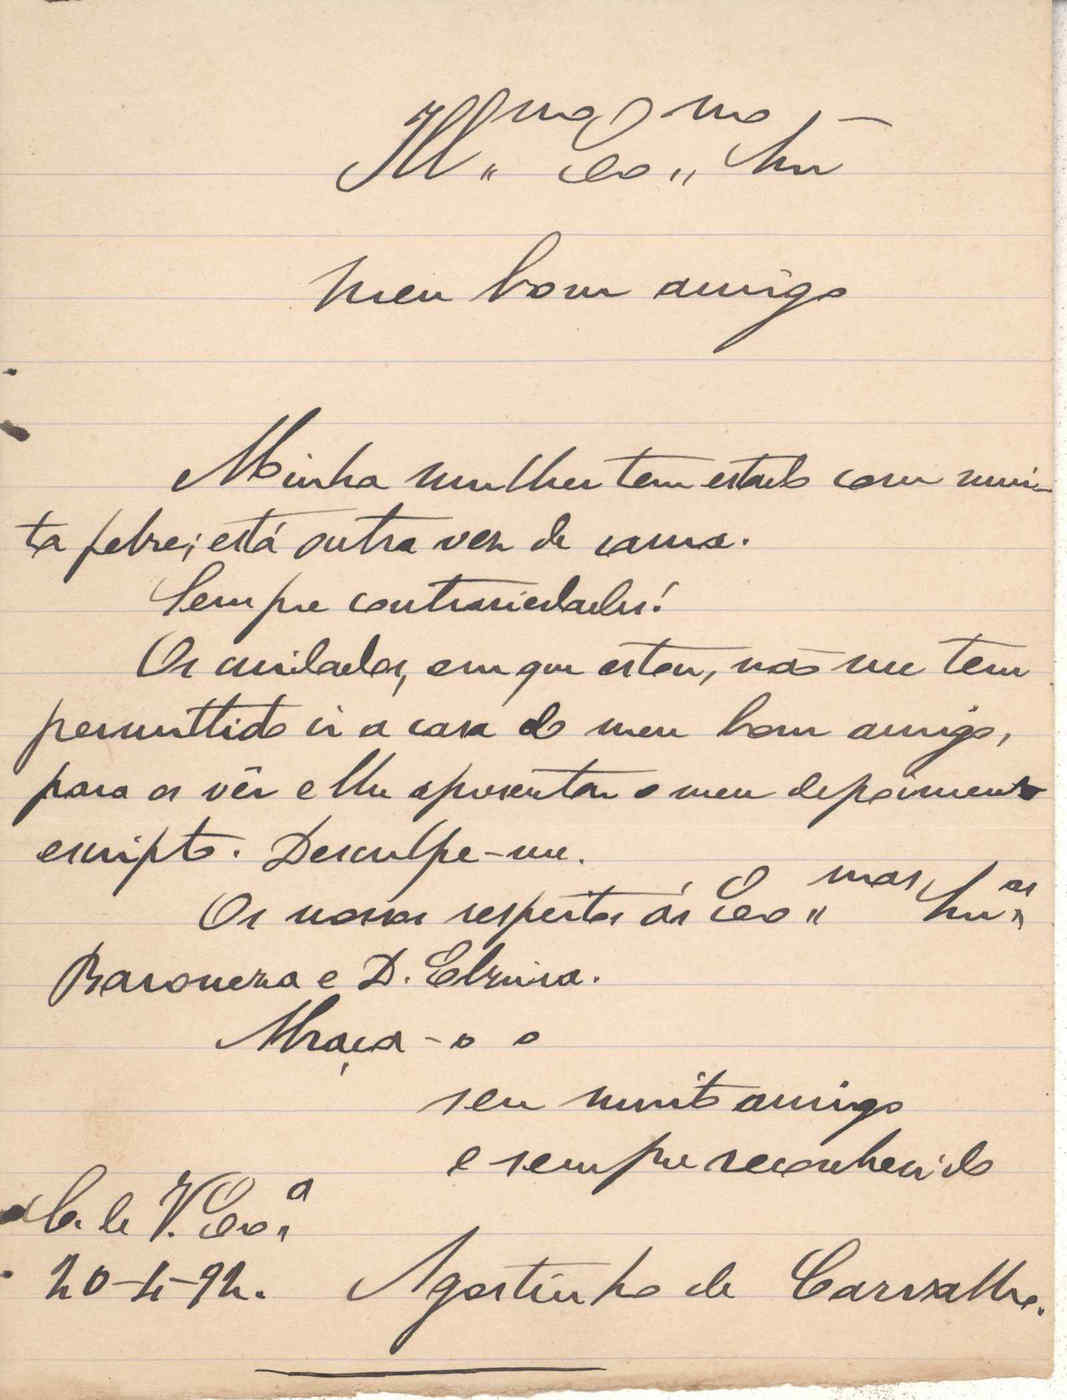 Ill.mo Ex.mo Snr.
Meu bom amigo
Minha mulher tem estado com mui-
ta febre; está outra vez de cama.
Sempre contrariedades!
Os cuidados, em que estou, não me tem
permittido ir a casa do meu bom amigo,
para os vêr e lhe apresentar o meu depoimento
escripto. Desculpe-me.
Os nossos respeitos ás Ex.mas Snr.as
Baroneza e D. Elvira.
Abraça-o o
seu muito amigo
e sempre reconhecido
C. de V. Ex.a
20-4-92.
Agostinho de Carvalho.